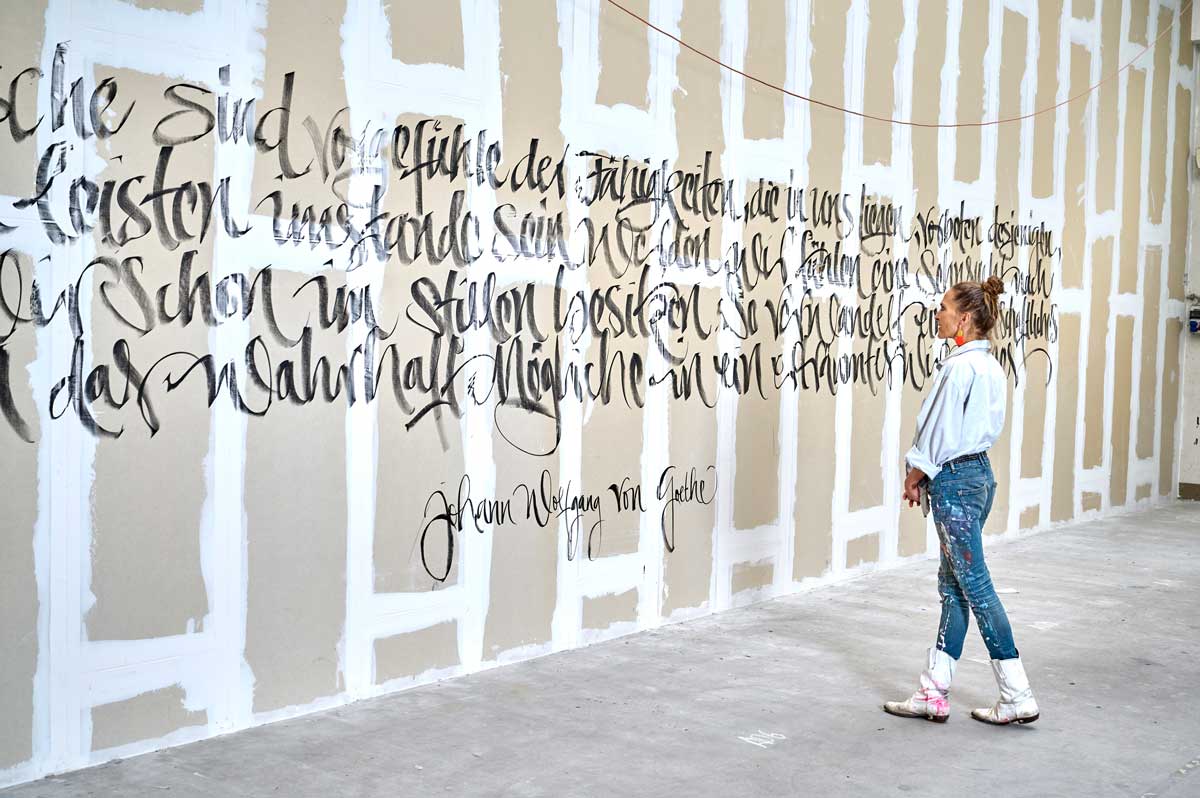 sche sind vorgefühle der Fähigkeiten, die in uns liegen, Vorboten desjenigen,
leisten imstande sein werden. wir fühlen eine Sehnsucht nach
wir schon im stillen besitzen. So verwandelt ein schaftliches
das wahrhaft Mögliche in ein erträumtes
Johann Wolfgang von Goethe